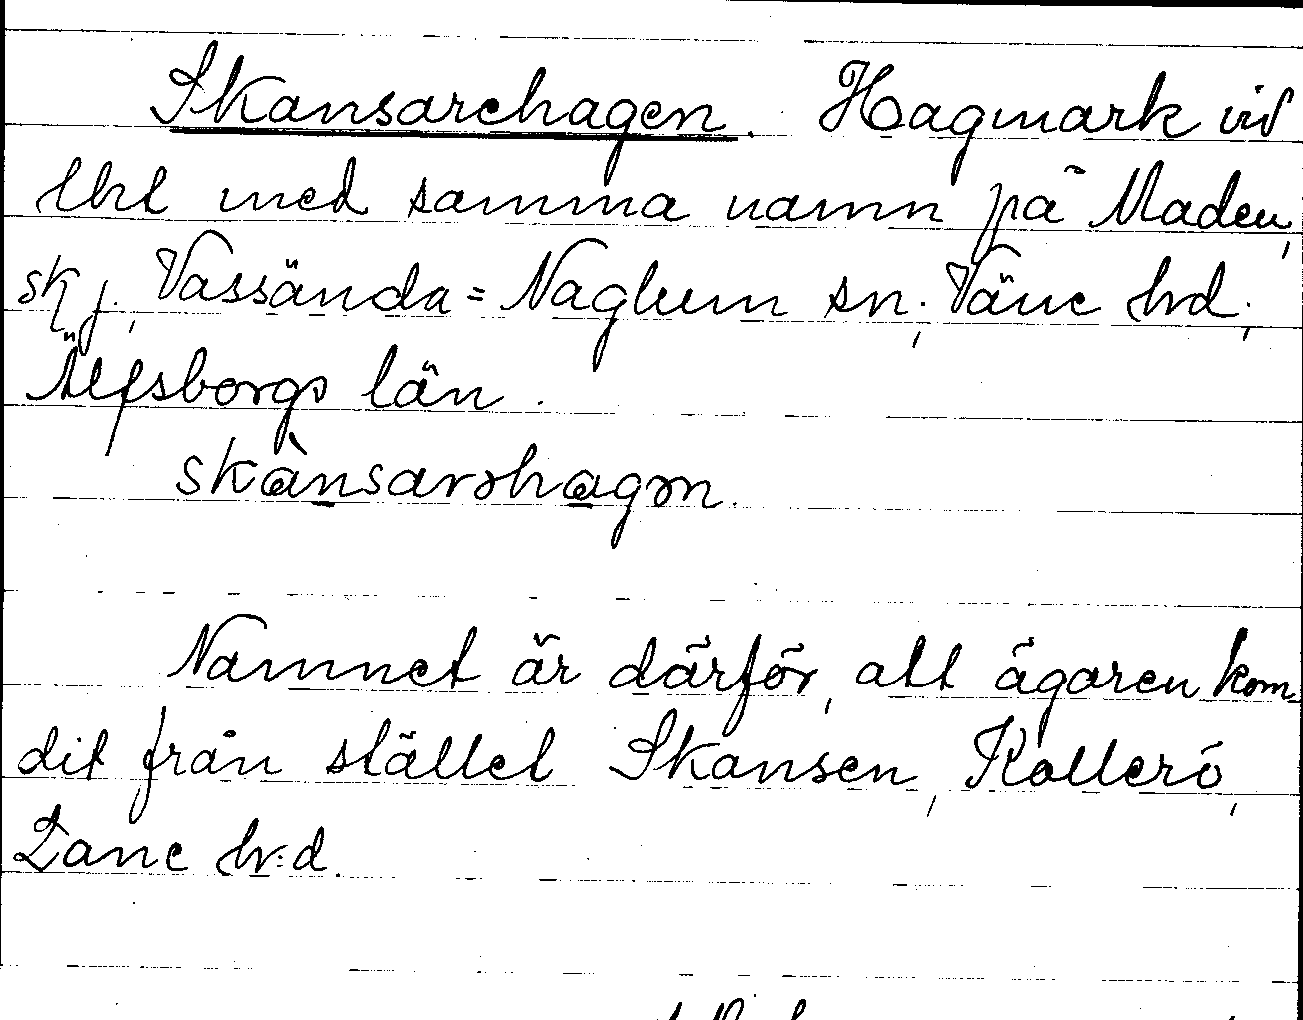 Skansarehagen. Hagmark vid
lht med samma namn på Maden,
skj. Vassända=Naglum sn; Väne hrd;
Älfsborgs län.
skànsarəhagən.
Namnet är därför, att ägaren kom
dit från stället Skansen, Kollerö,
Lane hr:d.